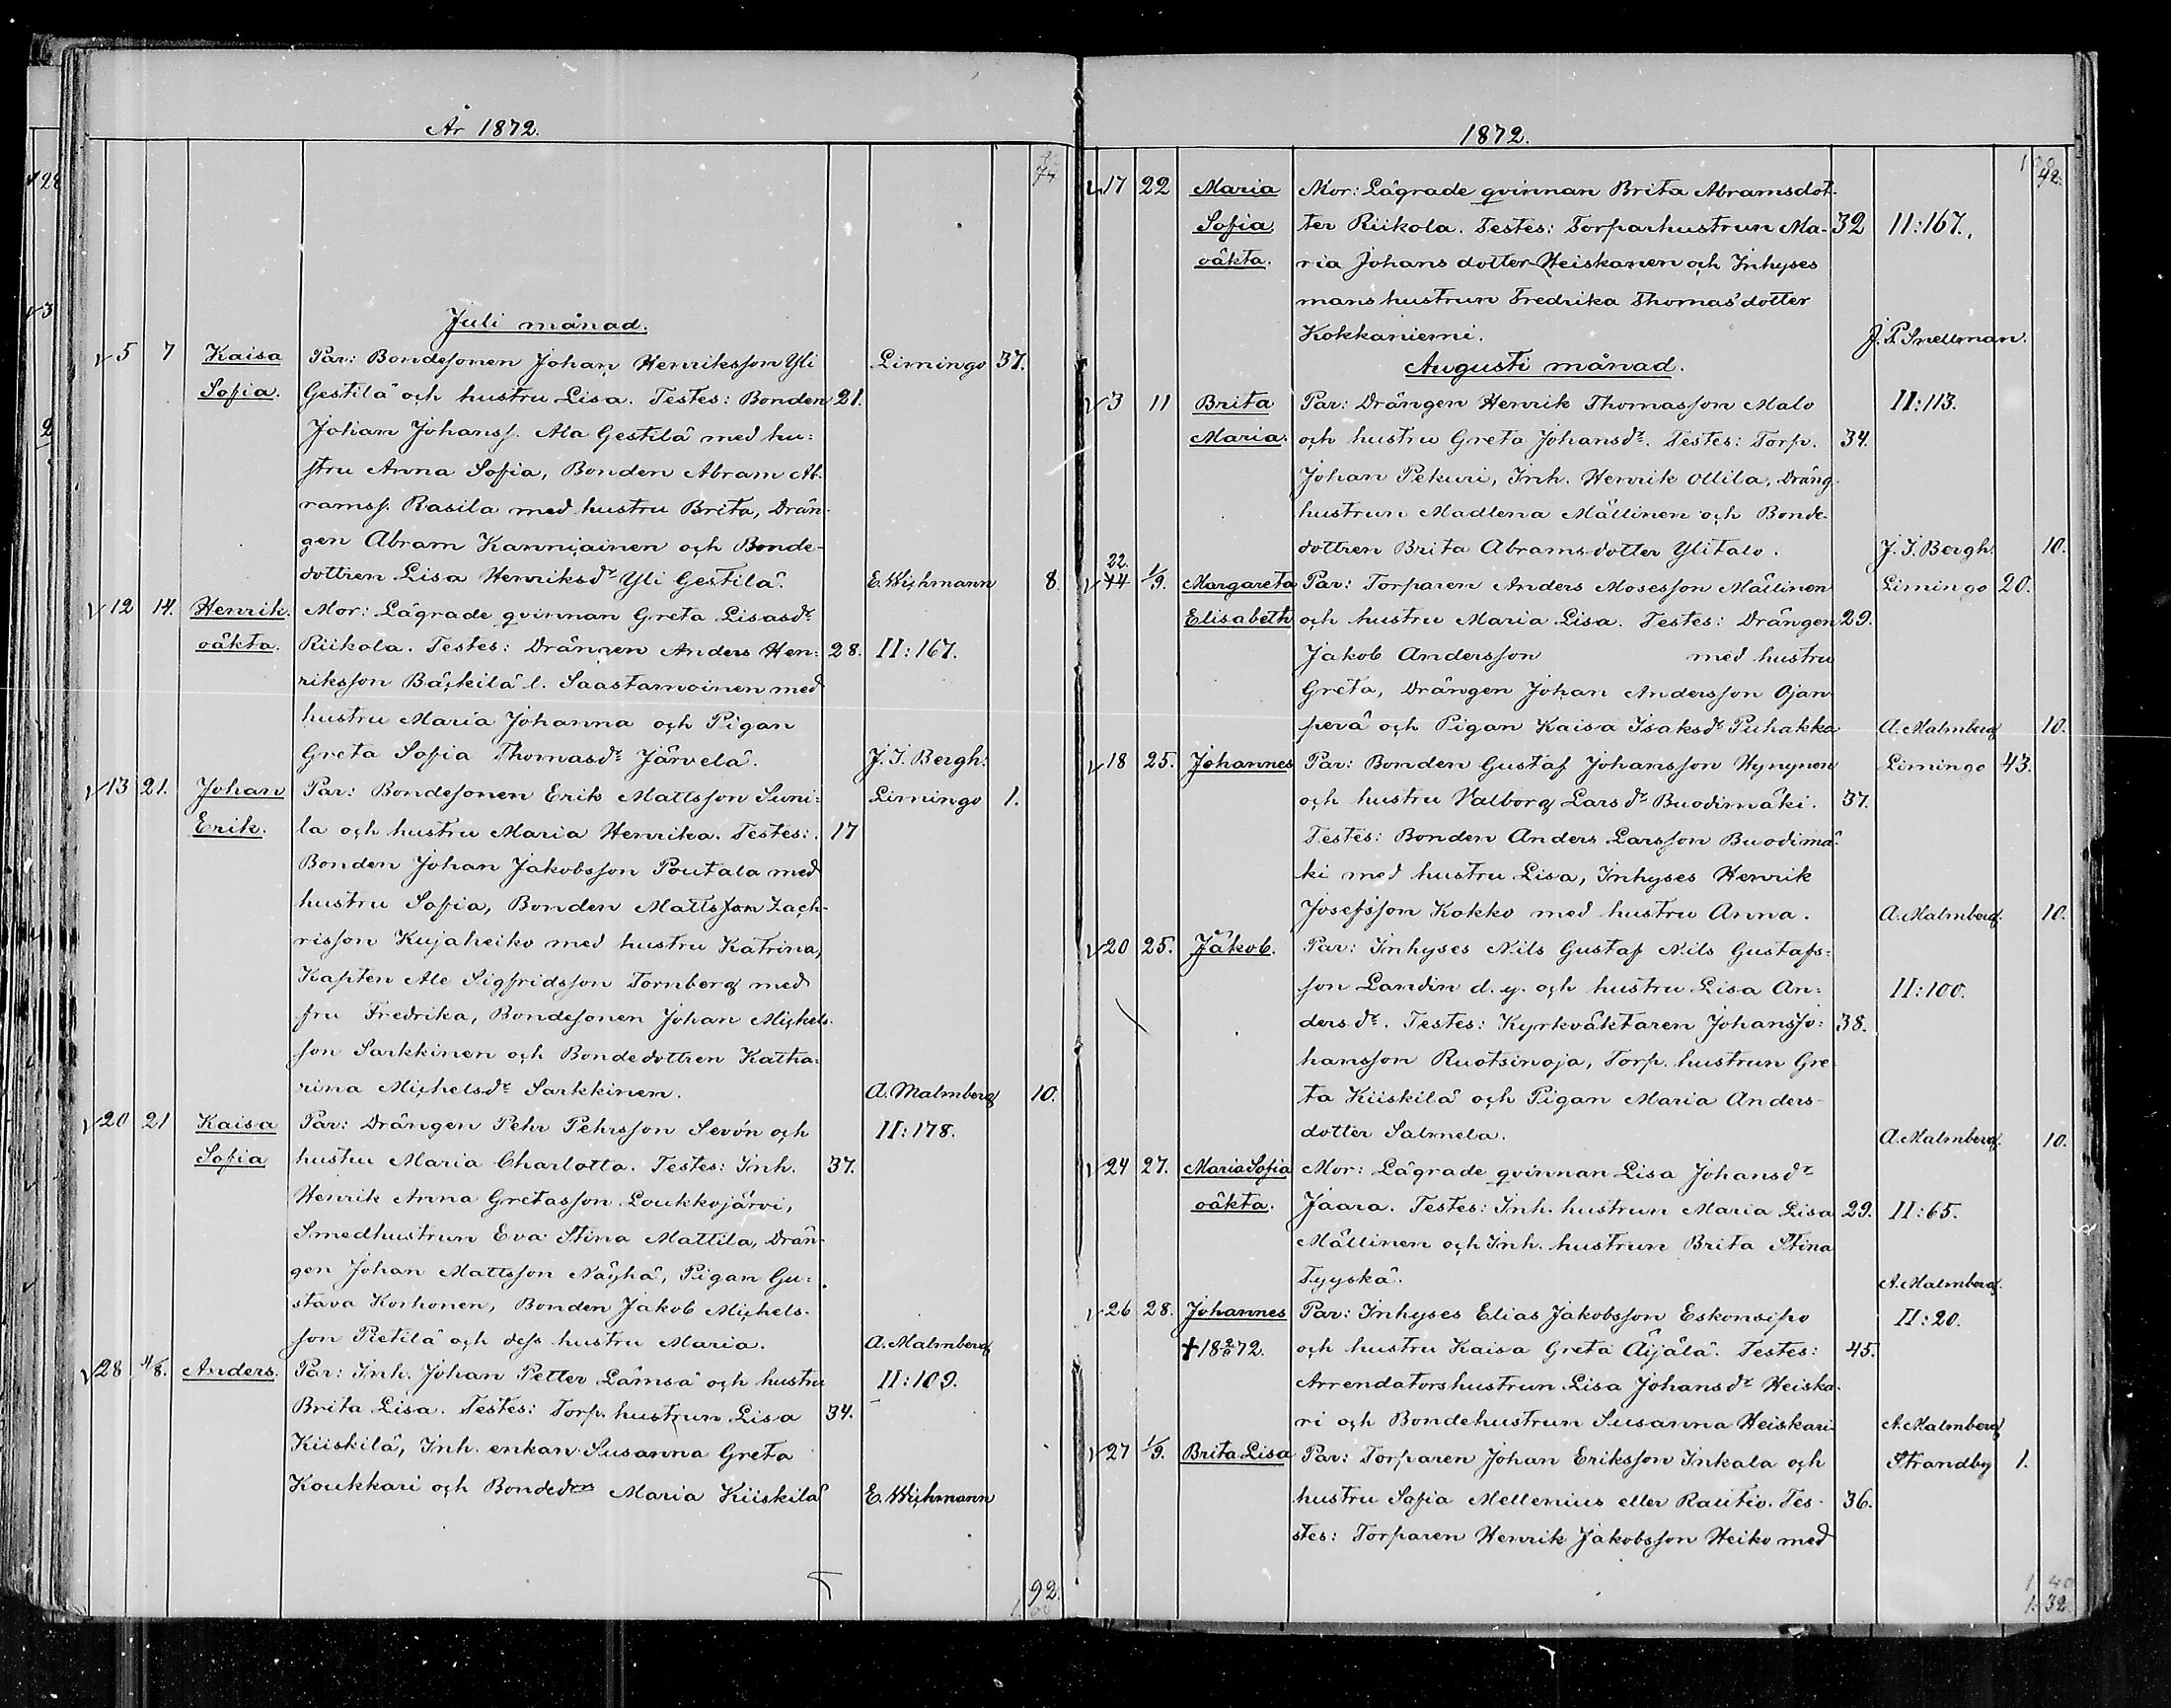 År 1872.
Juli månad.
5 7 Kaisa Par: Bondesonen Johan Henriksson Yli Limingo 37.
Sofia. Gestilä och hustru Lisa. Testes: Bonden 21.
Johan Johanss. Ala Gestilä med hu-
stru Anna Sofia, Bonden Abram Ab-
ramss. Rasila med hustru Brita, Drän-
gen Abram Kanniainen och Bonde-
dottren Lisa Henriksdr Yli Gestilä. E. Wichmann 8.
12 14. Henrik. Mor: Lägrade qvinnan Greta Lisasdr
oäkta. Riikola. Testes: Drängen Anders Hen- 28. II:167.
riksson Bäckilä l. Saastamoinen med
hustru Maria Johanna och Pigan
Greta Sofia Thomasdr Järvelä. J. I. Bergh.
13 21. Johan Par: Bondesonen Erik Mattsson Suni- Limingo 1.
Erik. la och hustru Maria Henrika. Testes: 17
Bonden Johan Jakobsson Poutala med
hustru Sofia, Bonden Matts Zach-
risson Kujaheiko med hustru Katrina,
Kapten Ale Sigfridsson Tornberg med
fru Fredrika, Bondesonen Johan Michels-
son Sarkkinen och Bondedottren Katha-
rina Michelsdr Sarkkinen. A. Malmberg 10.
20 21 Kaisa Par: Drängen Pehr Pehrsson Sevón och II:178.
Sofia hustru Maria Charlotta. Testes: Inh. 37.
Henrik Anna Gretasson Loukkojärvi,
Smedhustrun Eva Stina Mattila, Drän-
gen Johan Mattsson Näyhä, Pigan Gu-
stava Korhonen, Bonden Jakob Michels-
son Pietilä och dess hustru Maria. A. Malmberg
28 4/8. Anders. Par: Inh. Johan Petter Lämsä och hustru II:109.
Brita Lisa. Testes: Torp. hustrun Lisa 34.
Kiiskilä, Inh. enkan Susanna Greta
Koukkari och Bondedrn Maria Kiiskilä E. Wichmann
92.
1872.
17 22 Maria Mor: Lägrade qvinnan Brita Abramsdot-
Sofia. ter Riikola. Testes: Torparhustrun Ma- 32 II:167.
oäkta. ria Johans dotter Heiskanen och Inhyses
mans hustrun Fredrika Thomas dotter
Kokkaniemi. J. P. Snellman.
Augusti månad.
3 11 Brita Par: Drängen Henrik Thomasson Malo II:113.
Maria. och hustru Greta Johansdr. Testes: Torp. 34.
Johan Pekuri, Inh. Henrik Ollila, Dräng-
hustrun Madlena Mällinen och Bonde-
dottren Brita Abramsdotter Ylitalo. J. I. Bergh. 10.
22. 1/9. Margareta Par: Torparen Anders Mosesson Mällinen Limingo 20.
Elisabeth och hustru Maria Lisa. Testes: Drängen 29.
Jakob Andersson med hustru
Greta, Drängen Johan Andersson Ojan-
perä och Pigan Kaisa Isaksdr Puhakka A. Malmberg 10.
18 25. Johannes Par: Bonden Gustaf Johansson Hynynen Limingo 43.
och hustru Valborg Larsdr Buodimäki. 37.
Testes: Bonden Anders Larsson Buodimä-
ki med hustru Lisa, Inhyses Henrik
Josefsson Kokko med hustru Anna. A. Malmberg. 10.
20 25. Jakob. Par: Inhyses Nils Gustaf Nils Gustafs-
son Landin d. y. och hustru Lisa An- II:100.
dersdr. Testes: Kyrkväktaren Johan Jo- 38.
hansson Ruotsinoja, Torp. hustrun Gre
ta Kiiskilä och Pigan Maria Anders-
dotter Salmela. A. Malmberg. 10.
24 27. Maria Sofia Mor: Lägrade qvinnan Lisa Johansdr
oäkta. Jaara. Testes: Inh. hustrun Maria Lisa 29. II:65.
Mällinen och Inh. hustrun Brita Stina
Tyyskä. A. Malmberg.
26 28. Johannes Par: Inhyses Elias Jakobsson Eskonsipo II:20.
och hustru Kaisa Greta Äijälä. Testes: 45.
Arrendatorshustrun Lisa Johansdr Heiska-
ri och Bondehustrun Susanna Heiskari A. Malmberg
27 1/9. Brita Lisa Par: Torparen Johan Eriksson Inkala och Strandby 1.
hustru Sofia Mellenius eller Rautio. Tes- 36.
stes: Torparen Henrik Jakobsson Heiko med
1. 40
1. 32.